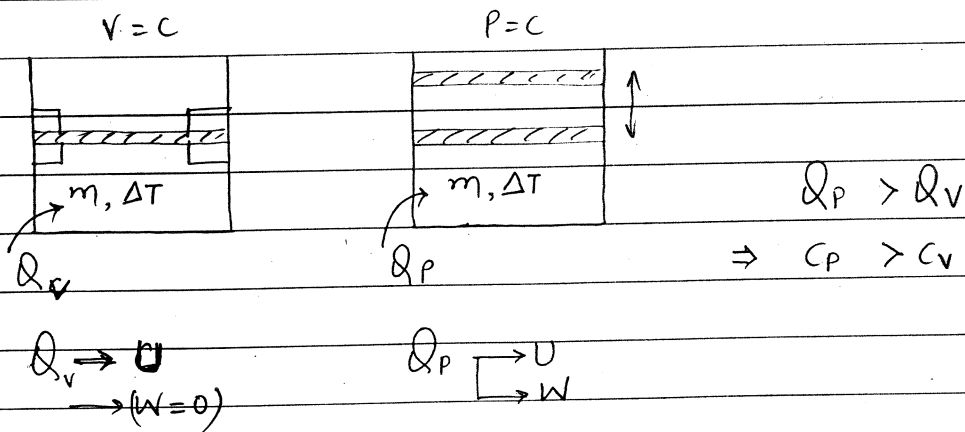 V = C P = C
m, ΔT m, ΔT Q_P > Q_V
Q_V Q_P ⇒ C_P > C_V
Q_V → U Q_P → U
→ (W = 0) → W